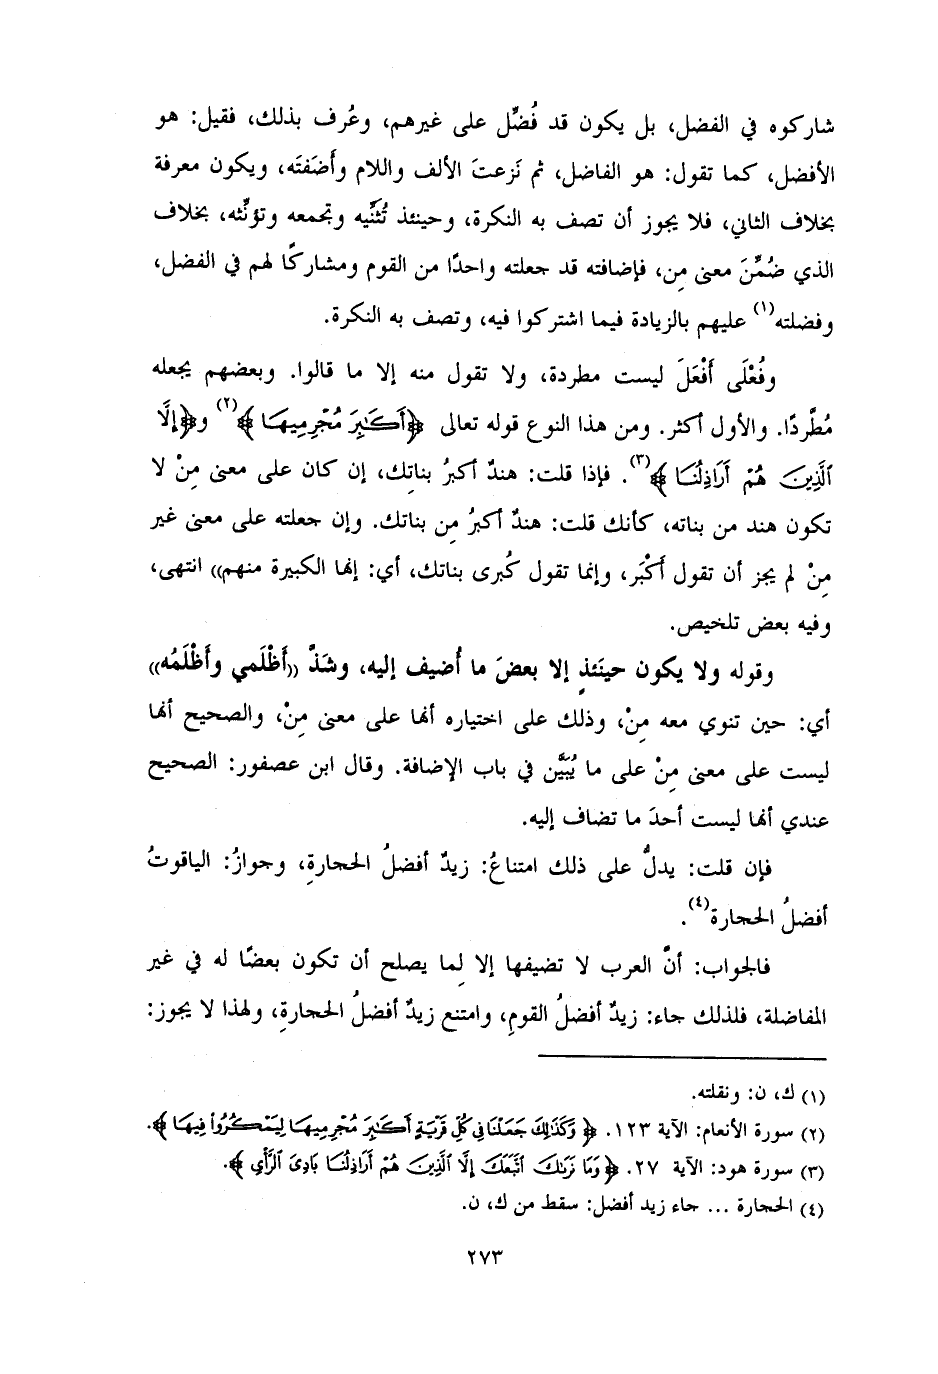 شاركوه في الفضل، بل يكون قد فُضِّل على غيرهم، وعُرف بذلك، فقيل: هو
الأفضل، كما تقول: هو الفاضل، ثم نَزعتَ الألف واللام وأَضَفتَه، ويكون معرفة
بخلاف الثاني، فلا يجوز أن تصف به النكرة، وحينئذ تُثَنِّيه وتجمعه وتؤنِّثه، بخلاف
الذي ضُمِّنَ معنى مِن، فإضافته قد جعلته واحدًا من القوم ومشاركًا لهم في الفضل،
وفضلته(١) عليهم بالزيادة فيما اشتركوا فيه، وتصف به النكرة.
وفُعْلَى أَفْعَلَ ليست مطردة، ولا تقول منه إلا ما قالوا. وبعضهم يجعله
مُطَّردًا. والأول أكثر. ومن هذا النوع قوله تعالى ﴿أَكَٰبِرَ مُجْرِمِيهَا﴾(٢) و﴿إِلَّا
ٱلَّذِينَ هُمْ أَرَاذِلُنَا﴾(٣). فإذا قلت: هندٌ أكبرُ بناتِك، إن كان على معنى مِنْ لا
تكون هند من بناته، كأنك قلت: هندٌ أكبرُ مِن بناتك. وإن جعلته على معنى غير
مِنْ لم يجز أن تقول أَكْبَر، وإنما تقول كُبرى بناتك، أي: إنها الكبيرة منهم)) انتهى،
وفيه بعض تلخيص.
وقوله ولا يكون حينَئذٍ إلا بعضَ ما أُضيف إليه، وشَذَّ ((أَظْلَمي وأَظْلَمُه))
أي: حين تنوي معه مِنْ، وذلك على اختياره أنها على معنى مِنْ، والصحيح أنها
ليست على معنى مِنْ على ما يُبَيَّن في باب الإضافة. وقال ابن عصفور: الصحيح
عندي أنها ليست أحدَ ما تضاف إليه.
فإن قلت: يدلُّ على ذلك امتناعُ: زيدٌ أفضلُ الحجارةِ، وجوازُ: الياقوتُ
أفضلُ الحجارة(٤).
فالجواب: أنَّ العرب لا تضيفها إلا لِما يصلح أن تكون بعضًا له في غير
المفاضلة، فلذلك جاء: زيدٌ أفضلُ القومِ، وامتنع زيدٌ أفضلُ الحجارةِ، ولهذا لا يجوز:
(١) ك، ن: ونقلته.
(٢) سورة الأنعام: الآية ١٢٣. ﴿وَكَذَٰلِكَ جَعَلْنَا فِي كُلِّ قَرْيَةٍ أَكَٰبِرَ مُجْرِمِيهَا لِيَمْكُرُوا۟ فِيهَا﴾.
(٣) سورة هود: الآية ٢٧. ﴿وَمَا نَرَىٰكَ ٱتَّبَعَكَ إِلَّا ٱلَّذِينَ هُمْ أَرَاذِلُنَا بَادِىَ ٱلرَّأْيِ﴾.
(٤) الحجارة ... جاء زيد أفضل: سقط من ك، ن.
٢٧٣